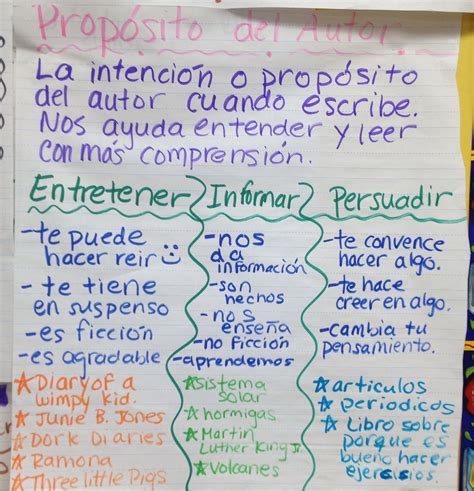 Propósito del Autor.
La intención o propósito
del autor cuando escribe.
Nos ayuda entender y leer
con más comprensión.
Entretener
-te puede
hacer reir
-te tiene
en suspenso
-es ficción
-es agradable
Diary of a
wimpy kid.
Junie B. Jones
Dork Diaries
Ramona
Three little Pigs
Informar
-nos
da
información
-son
hechos
-nos
enseña
-no ficción
-aprendemos
sistema
solar
hormigas
Martin
Luther King Jr.
Volcanes
Persuadir
-te convence
hacer algo.
-te hace
creer en algo.
-cambia tu
pensamiento.
articulos
periodicos
Libro sobre
porque es
bueno hacer
ejercisios.